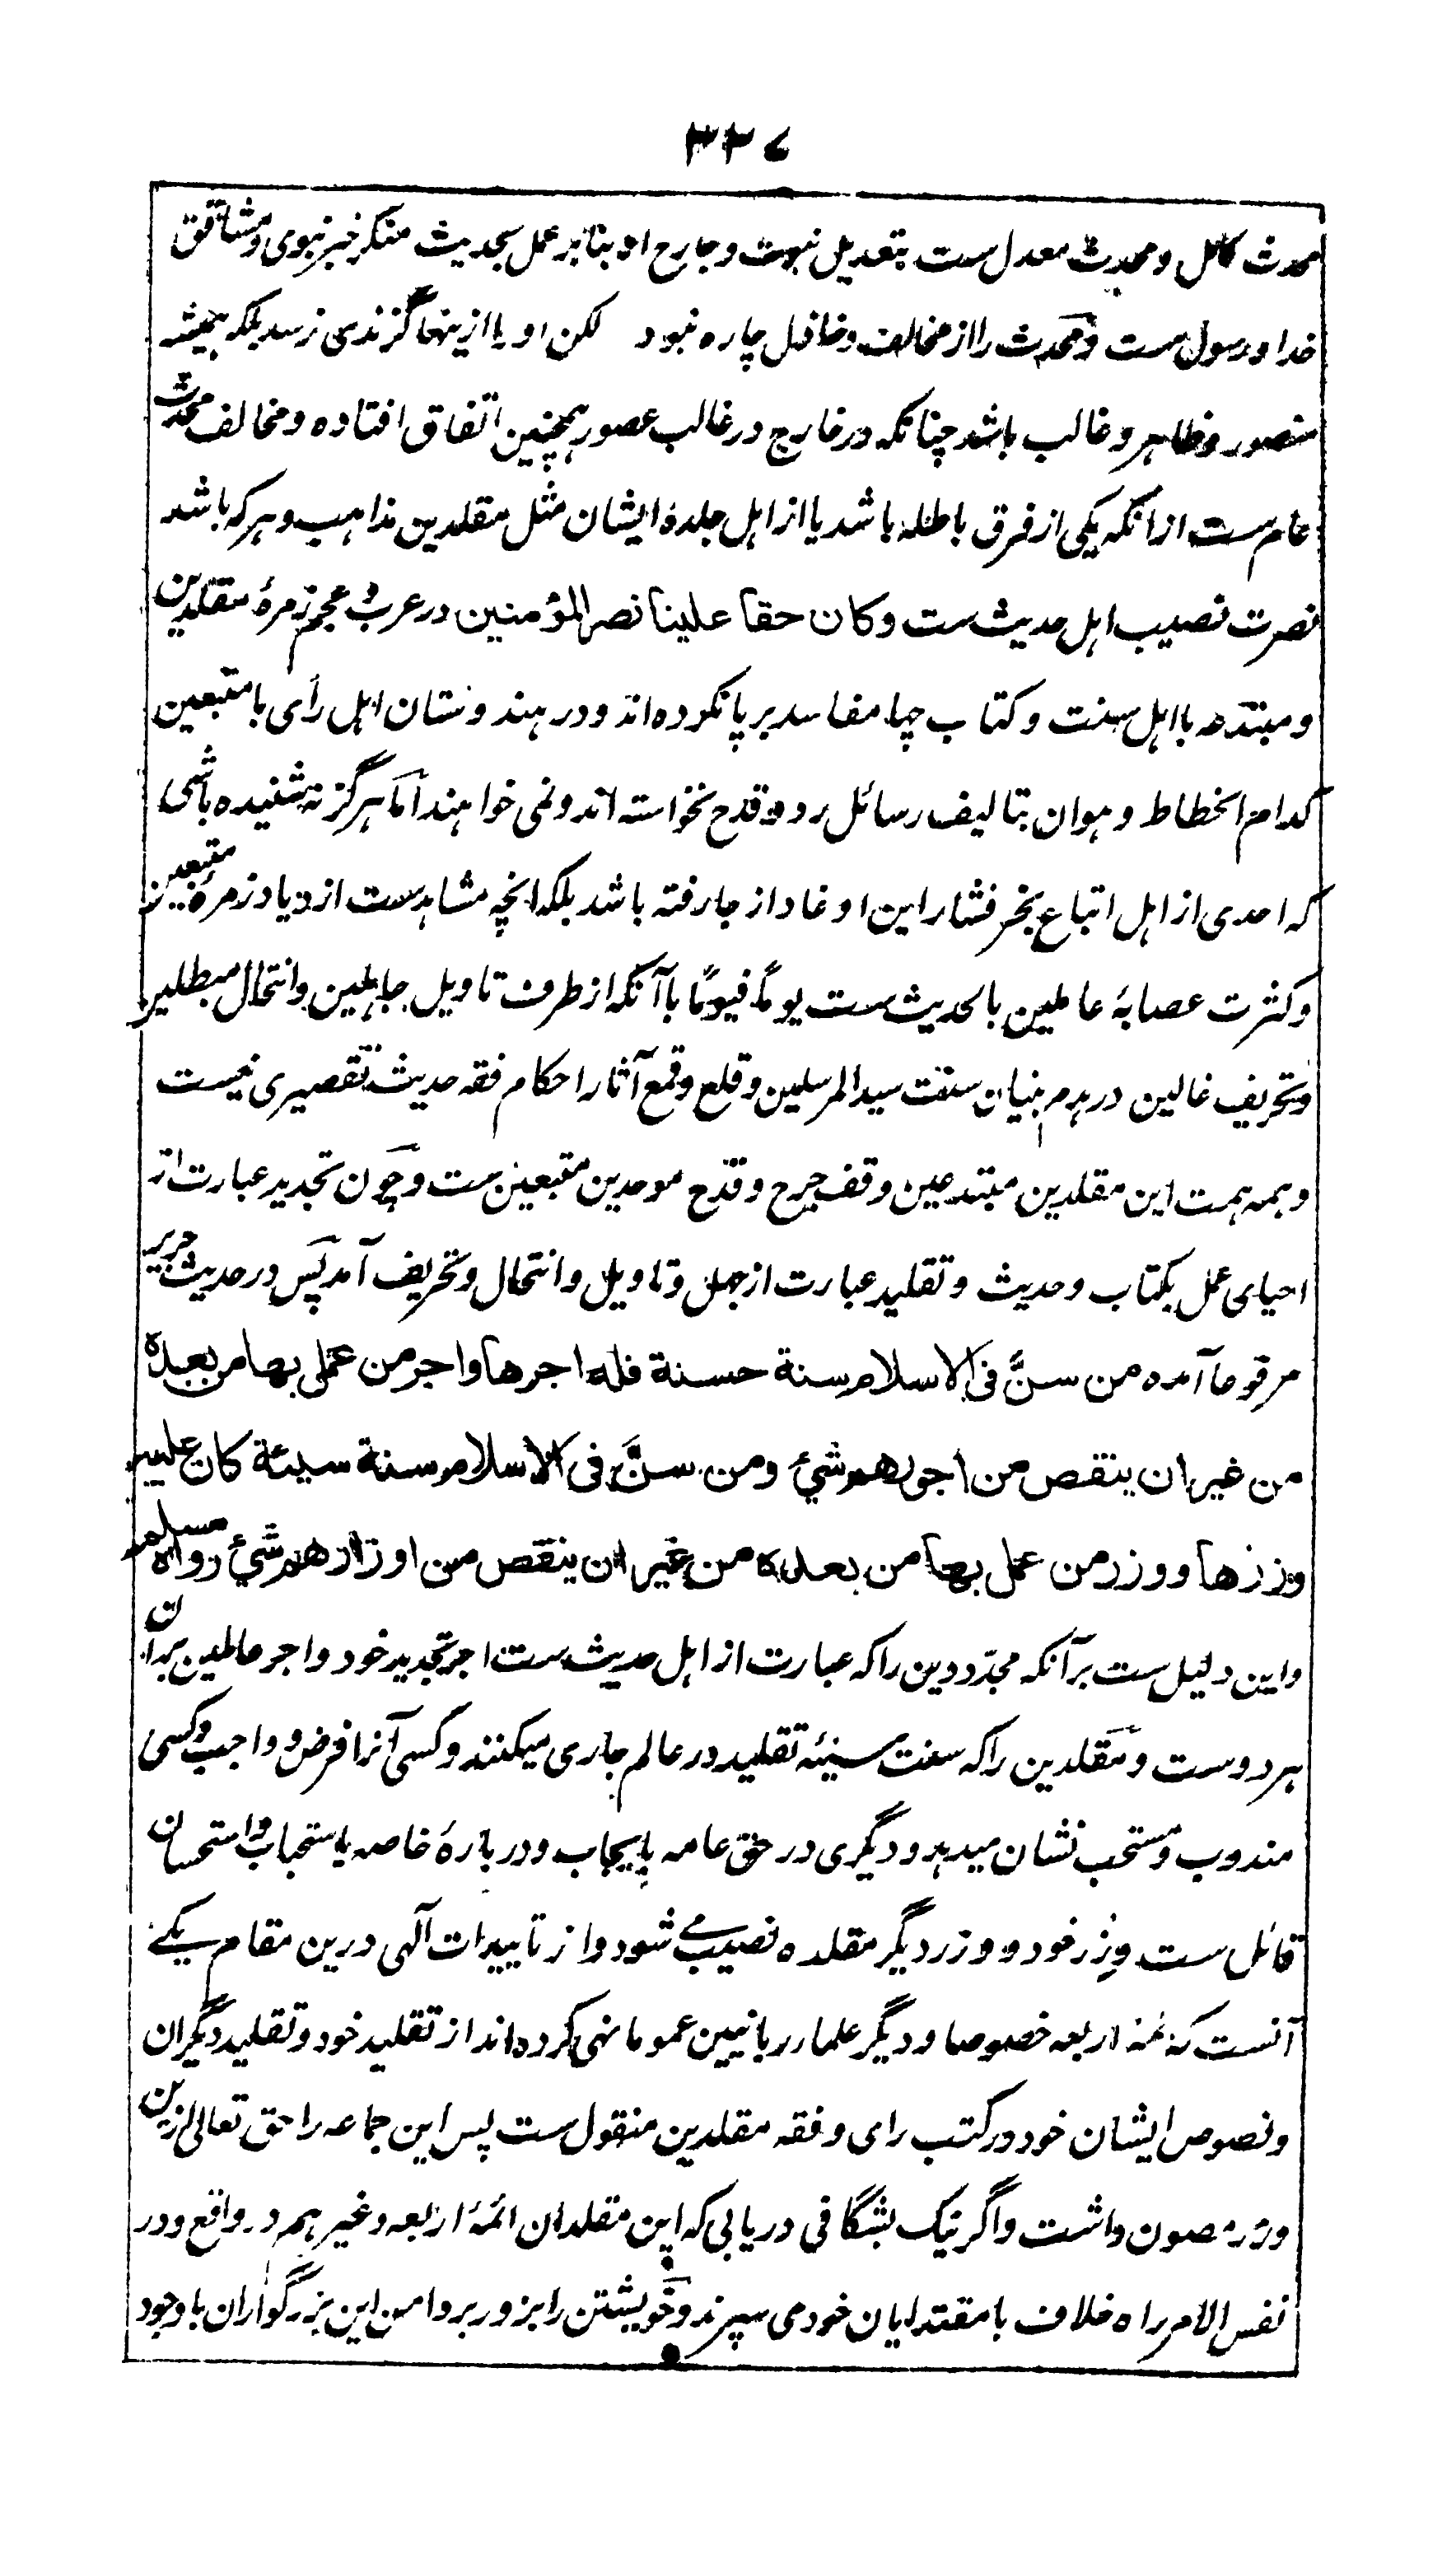 ۳۳۷
محدث کامل و محدث معدل ست بتعدیل نبوت و جارح او بنابر عمل بحدیث منکر خبر نبوی و مشاقق
خدا و رسول ست و محدث را از مخالف و خاذل چاره نبود لکن او را ازینها گزندی نرسد بلکه همیشه
منصور و ظاهر و غالب باشد چنانکه در خارج در غالب عصور همچنین اتفاق افتاده و مخالف محدث
عام ست از آنکه یکی از فرق باطله باشد یا از اهل جلدهٔ ایشان مثل مقلدین مذاهب و هر که باشد
نصرت نصیب اهل حدیث ست وکان حقا علینا نصر المؤمنین در عرب و عجم زمرهٔ مقلدین
و مبتدعه با اهل سنت و کتاب چها مفاسد برپا نکرده اند و در هندوستان اهل رای با متبعین
کدام انحطاط و هوان بتالیف رسائل رد و قدح نخواسته اند و نمی خواهند اما هرگز نه شنیده باشی
که احدی از اهل اتباع بخر فشار این اوغاد از جا رفته باشد بلکه انچه مشاهدست ازدیاد زمرهٔ متبعین
و کثرت عصابهٔ عاملین بالحدیث ست یوماً فیوماً با آنکه از طرف تاویل جاهلین و انتحال مبطلین
و تحریف غالین در هدم بنیان سنت سید المرسلین و قلع و قمع آثار احکام فقه حدیث تقصیری نیست
و همه همت این مقلدین مبتدعین وقف جرح و قدح موحدین متبعین ست و چون تجدید عبارت از
احیای عمل بکتاب و حدیث و تقلید عبارت از جهل و تاویل و انتحال و تحریف آمد پس در حدیث جریر
مرفوعا آمده من سنَّ فی الاسلام سنة حسنة فله اجرها واجر من عمل بها من بعده
من غیر ان ینقص من اجورهم شیٔ ومن سنَّ فی الاسلام سنة سیئة کان علیه
وزرها ووزر من عمل بها من بعده من غیر ان ینقص من اوزارهم شیٔ رواه مسلم
و این دلیل ست بر آنکه مجدّد دین را که عبارت از اهل حدیث ست اجر تجدید خود و اجر عاملین بر آن
هر دوست و مقلدین را که سنت سیئه تقلید در عالم جاری میکنند و کسی آنرا فرض و واجب و کسی
مندوب و مستحب نشان میدهد و دیگری در حق عامه بایجاب و در بارهٔ خاصه باستحباب و استحسان
قائل ست وزر خود و وزر دیگر مقلده نصیب می شود و از تاییدات آلهی درین مقام یکے
آنست که ائمه اربعه خصوصا و دیگر علماء ربانیین عموما نهی کرده اند از تقلید خود و تقلید دیگران
و نصوص ایشان خود در کتب رای و فقه مقلدین منقول ست پس این جماعه را حق تعالی ازین
وزر مصون داشت و اگر نیک بشگافی دریابی که این مقلدان ائمهٔ اربعه و غیر هم در واقع و در
نفس الامر براه خلاف با مقتدایان خود می سپرند و خویشتن را بزور بر دامن این بزرگواران با وجود